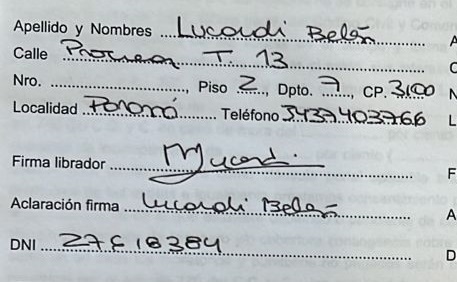 Apellido y Nombres Lucardi Belen
Calle T. 13
Nro. , Piso 2, Dpto. 7, CP. 3100
Localidad Paraná Teléfono 3437403766
Firma librador
Aclaración firma Lucardi Belen
DNI